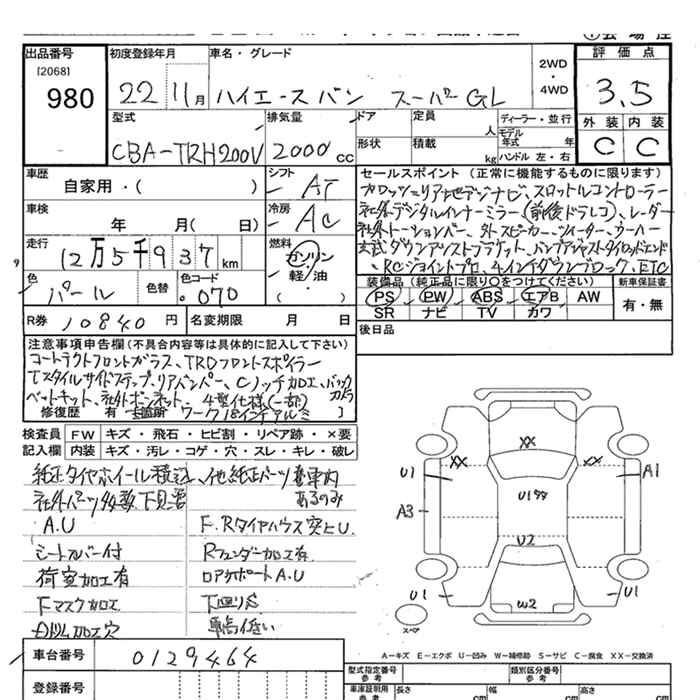 出品番号
[2068]
980
初度登録年月
22 11月
車名・グレード
ハイエースバン スーパーGL
2WD
・
4WD
評価点
3.5
外装 内装
C C
型式
CBA-TRH200V
排気量
2000cc
ドア
形状
定員
人
積載
kg
ディーラー・並行
モデル
年式 年
ハンドル 左・右
車歴
自家用・( )
シフト
AT
車検
年 月( 日)
冷房
AC
走行
12万5千937km
燃料
ガソリン
軽油
( )
色
パール
色替
色コード
070
R券 10840円
名変期限 月 日
セールスポイント (正常に機能するものに限ります)
カロッツェリア地デジナビ、スロットルコントローラー
社外デジタルインナーミラー(前後ドラレコ)、レーダー
社外トーションバー、外スピーカー、ツイーター、ウーハー
玄武ダウンアシストブラケット、バンプアジャストタイロッドエンド
、RCジョイントプロ、4インチダウンブロック、ETC
装備品 (純正品に限り○をつけてください)
新車保証書
PS PW ABS エアB AW
SR ナビ TV カワ
有・無
後日品
注意事項申告欄 (不具合内容等は具体的に記入して下さい)
コートテクトフロントガラス、TRDフロントスポイラー
Tスタイルサイドステップ、リアバンパー、Cノッチ加工、バックカメラ
ベットキット、社外ボンネット、4型仕様(一部)
修復歴 有 ワーク18インチアルミ
検査員
記入欄
FW キズ・飛石・ヒビ割・リペア跡・×要
内装 キズ・汚レ・コゲ・穴・スレ・キレ・破レ
純正タイヤホイール積込、他純正パーツ車内
あるのみ
社外パーツ多数下見要
A.U
F.Rタイヤハウス突上U.
シートカバー付
Rフェンダー加工有
荷室加工有
ロアサポートA.U
Fマスク加工
下廻りS
内トリム加工穴
車高低い
XX
XX XX
U1 A1
U1
A3
U2
U1 U1
W2
スペア
A-キズ E-エクボ U-凹み W-補修跡 S-サビ C-腐食 XX-交換済
車台番号
0129464
登録番号
型式指定番号
参考
類別区分番号
参考
車庫証明用
参考
長さ cm
幅 cm
高さ cm